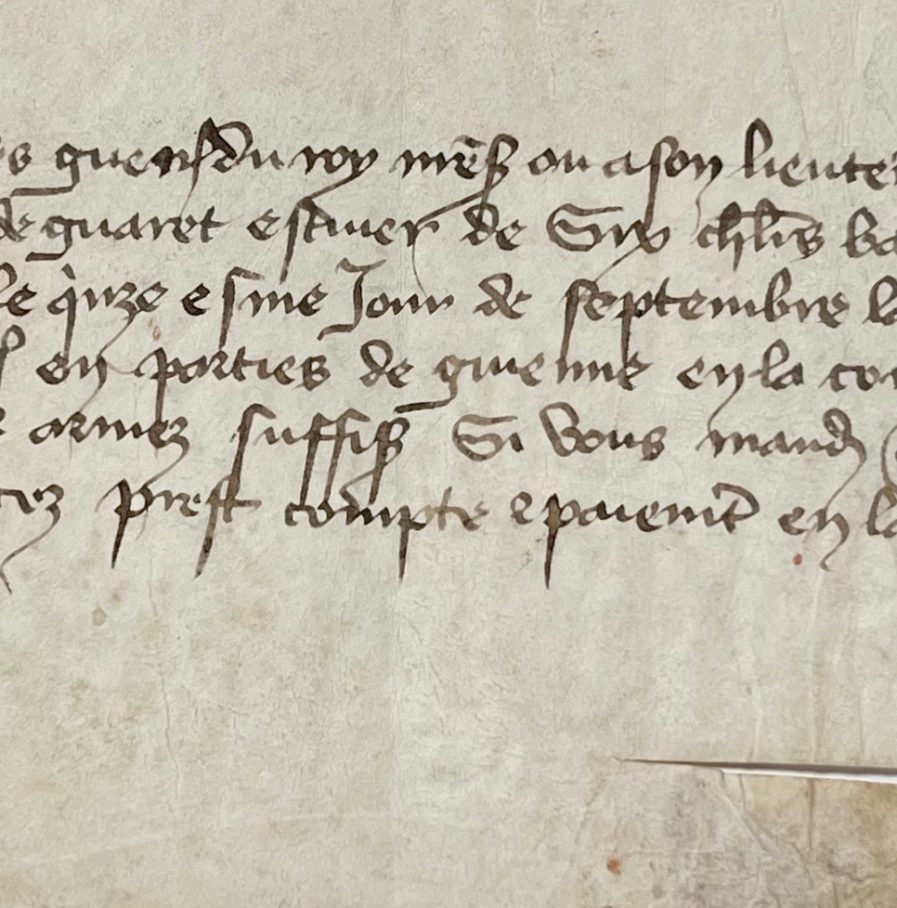 es guerres du roy nres ou a son lieuten
de guaret escuier de Six chlrs ba
le quze esme Jour de septembre la
en parties de guienne en la co
armez suffis Si vous mand
tez prest compte & paiemt en la